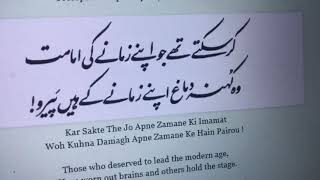 کر سکتے تھے جو اپنے زمانے کی امامت
وہ کہنہ دماغ اپنے زمانے کے ہیں پیرو!
Kar Sakte The Jo Apne Zamane Ki Imamat
Woh Kuhna Damagh Apne Zamane Ke Hain Pairou !
Those who deserved to lead the modern age,
worn out brains and others hold the stage.